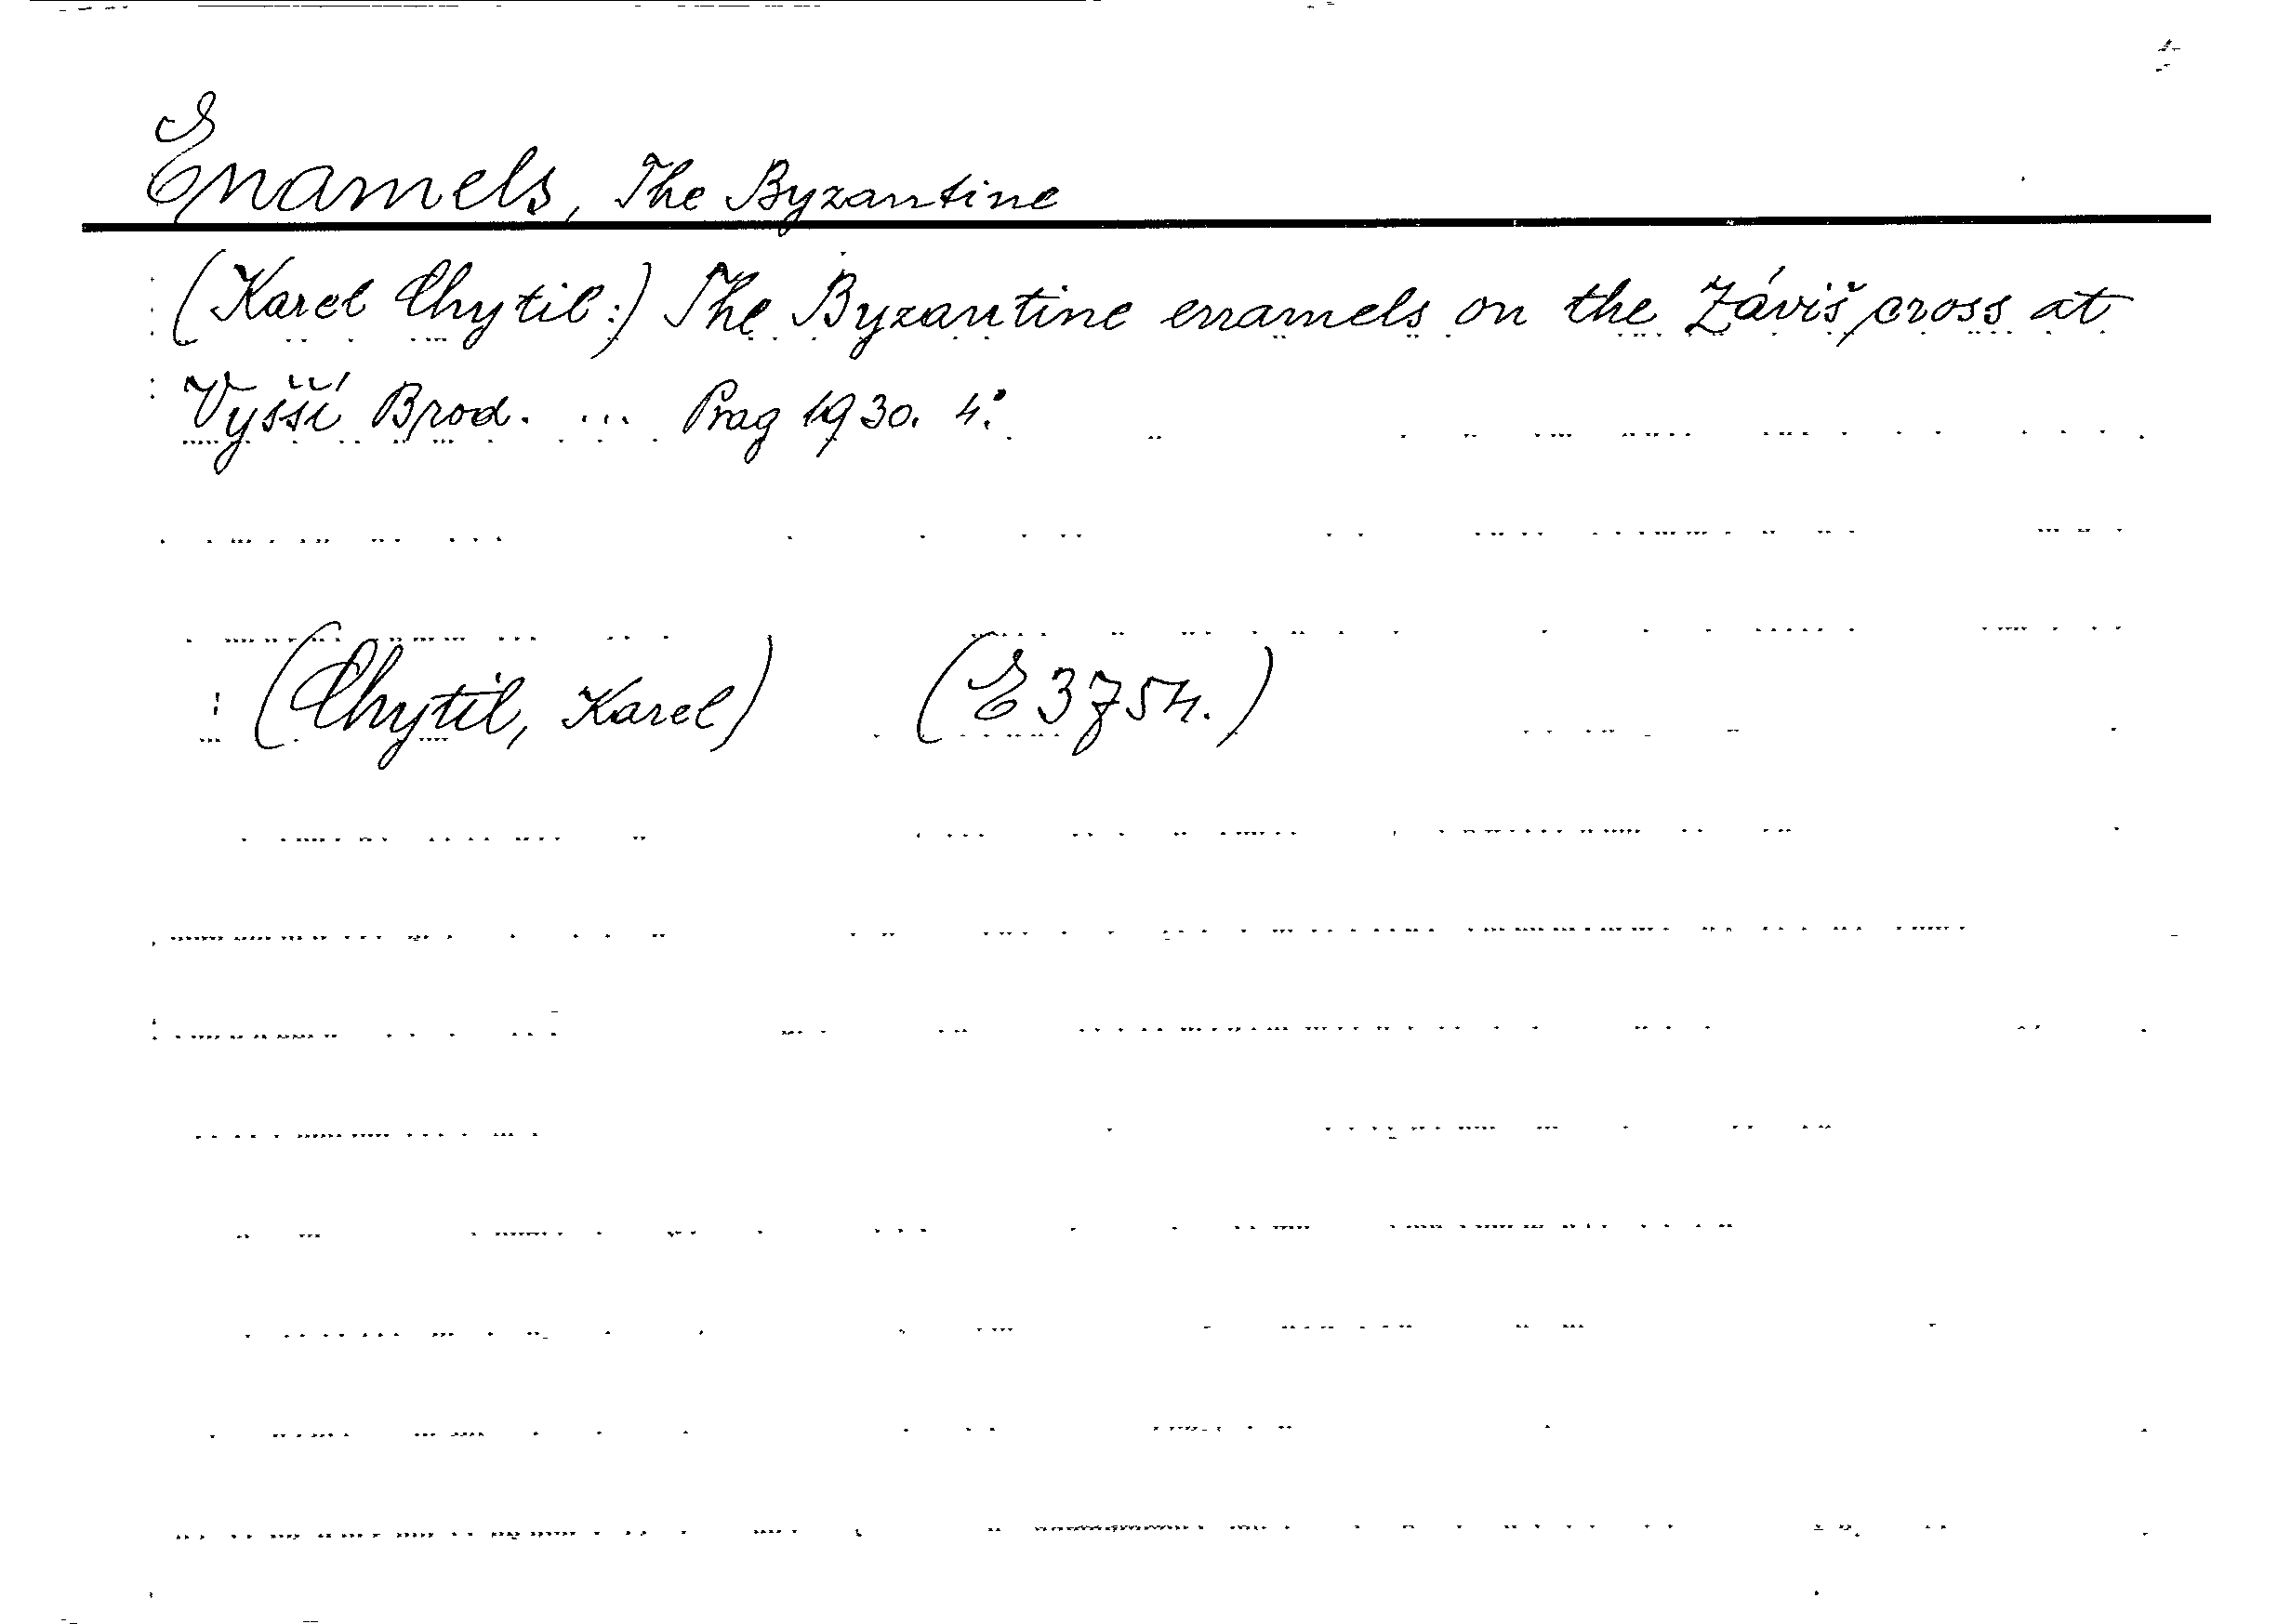 Enamels, The Byzantine
(Karel Chytil:) The Byzantine enamels on the Záviš cross at
Vyšší Brod. ... Prag 1930. 4°.
(Chytil, Karel) (E 3754.)